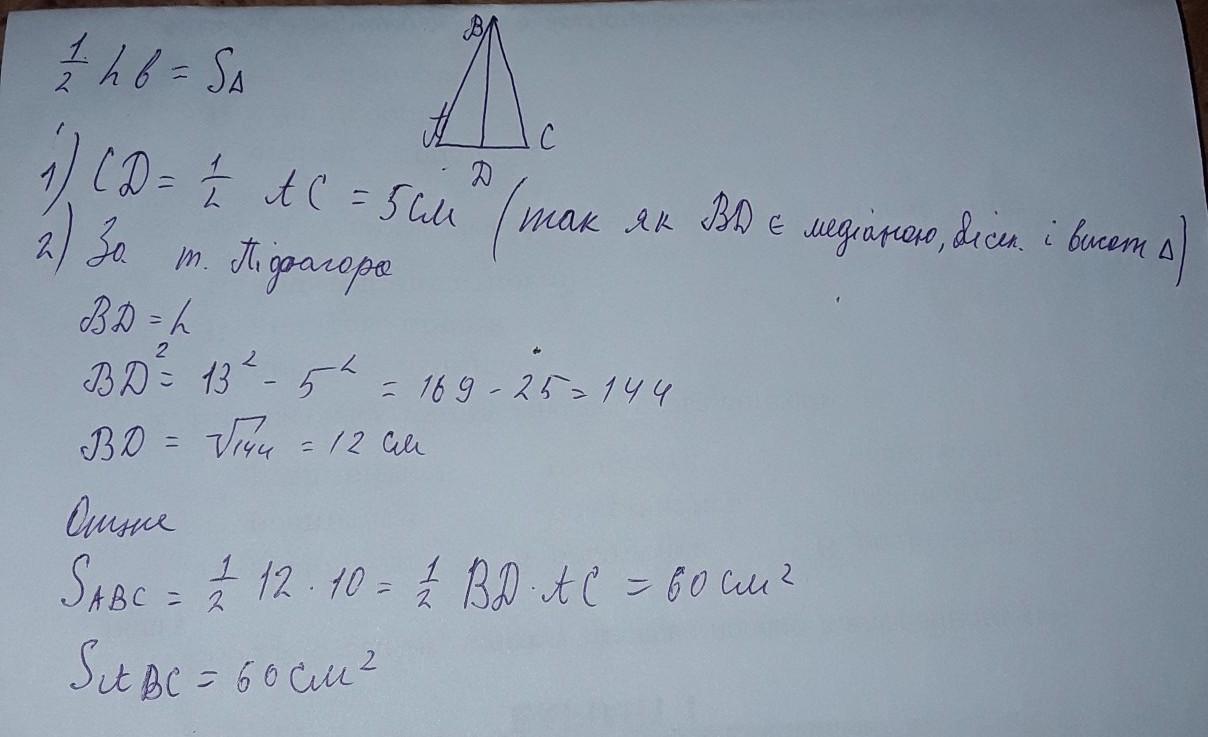 ½ h b = S∆
B
A
C
D
1) CD = ½ AC = 5см (так як BD є медіаною, бісек. і висот ∆)
2) За т. Підагора
BD = h
BD² = 13² - 5² = 169 - 25 = 144
BD = √144 = 12 см
Отже
S ABC = ½ 12 · 10 = ½ BD · AC = 60 см²
S ABC = 60 см²